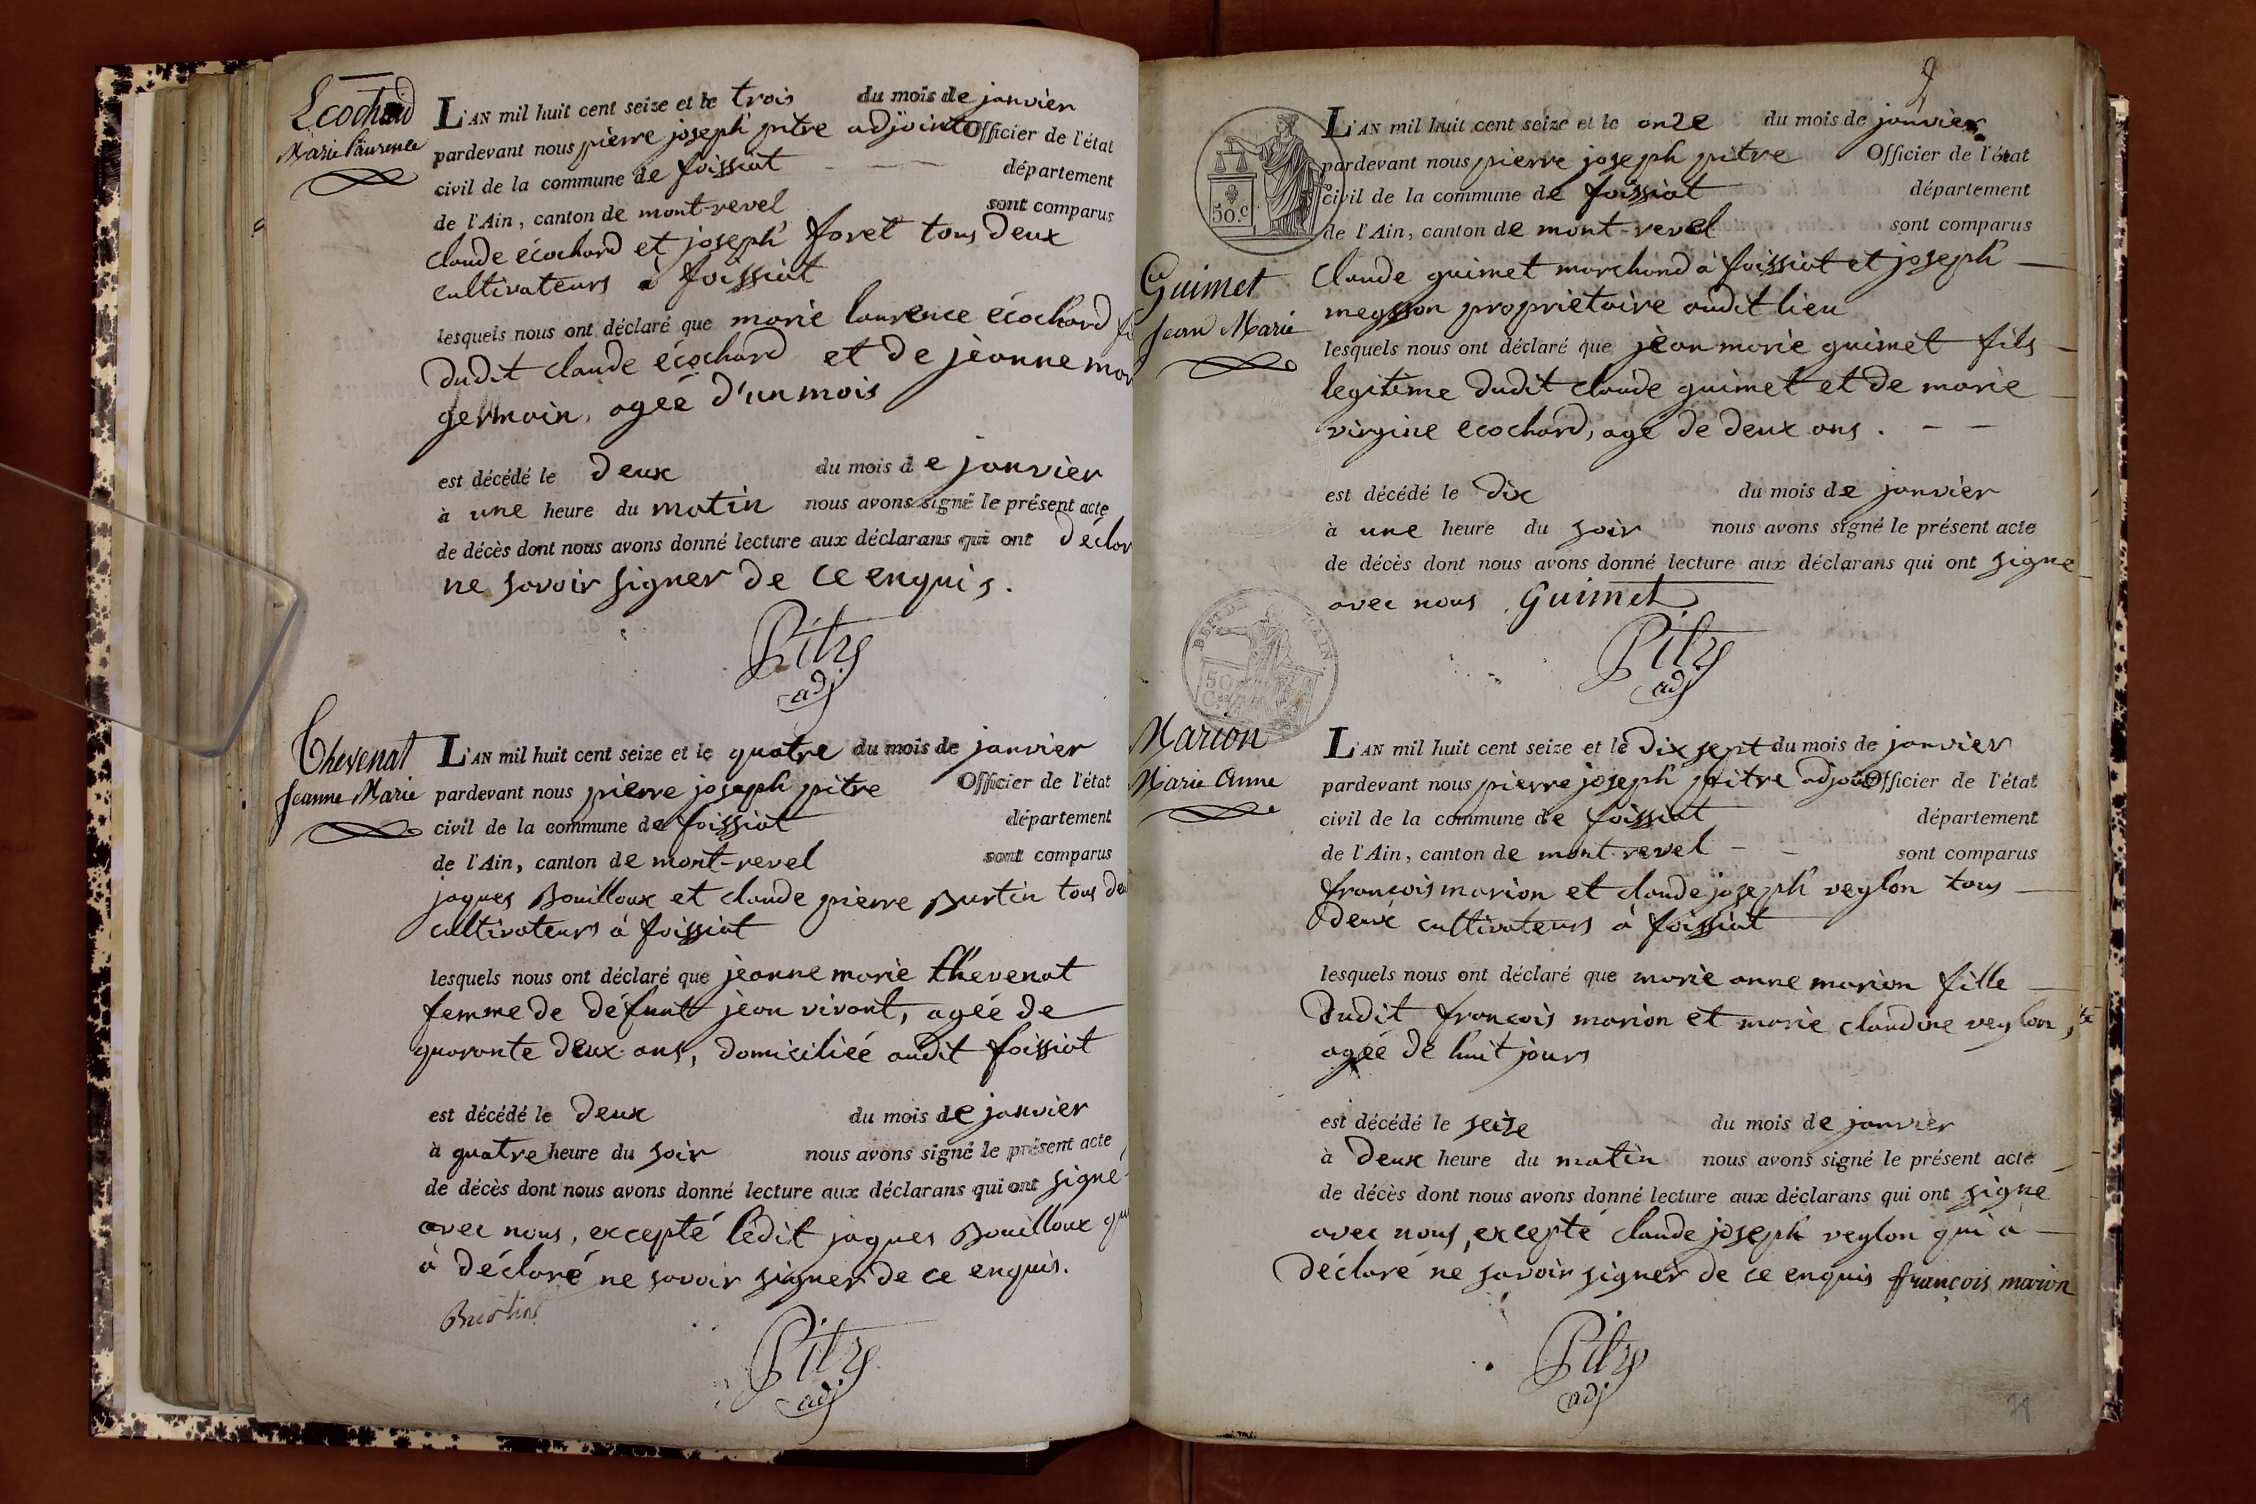 Ecochard
Marie Laurence
L'AN mil huit cent seize et le trois du mois de janvier
pardevant nous pierre joseph pitre adjoint Officier de l'état
civil de la commune de foissiat département
de l'Ain, canton de mont-revel sont comparus
claude écochard et joseph foret tous deux
cultivateurs à foissiat
lesquels nous ont déclaré que marie laurence écochard
dudit claude écochard et de jèanne
germain, ageé d'un mois
est décédé le deux du mois de janvier
à une heure du matin nous avons signé le présent acte
de décès dont nous avons donné lecture aux déclarans qui ont déclar
ne savoir signer de ce enquis.
Pitre
adj
Thevenat
Jeanne Marie
L'AN mil huit cent seize et le quatre du mois de janvier
pardevant nous pierre joseph pitre Officier de l'état
civil de la commune de foissiat département
de l'Ain, canton de mont-revel sont comparus
jaques Bouilloux et claude pierre Burtin tous deu
cultivateurs à foissiat
lesquels nous ont déclaré que jeanne marie thevenat
femme de défunt jean vivant, ageé de
quarante deux ans, domiciliéé audit foissiat
est décédé le deux du mois de janvier
à quatre heure du soir nous avons signé le présent acte
de décès dont nous avons donné lecture aux déclarans qui ont signé
avec nous, excepté ledit jaques Bouilloux qui
à déclaré ne savoir signer de ce enquis.
Burtin
Pitre
adj
9
50.c
L'AN mil huit cent seize et le onze du mois de janvier
pardevant nous pierre joseph pitre Officier de l'état
civil de la commune de foissiat département
de l'Ain, canton de mont-revel sont comparus
Guimet
Jean Marie
claude guimet marchand à foissiat et joseph
meysson propriétaire audit lieu
lesquels nous ont déclaré que jèan marie guimet fils
legitime dudit claude guimet et de marie
virginie ecochard, agé de deux ans.
est décédé le dix du mois de janvier
à une heure du soir nous avons signé le présent acte
de décès dont nous avons donné lecture aux déclarans qui ont signe
avec nous Guimet
Pitre
adj
Marion
Marie Anne
L'AN mil huit cent seize et le dix sept du mois de janvier
pardevant nous pierre joseph pitre adjoint Officier de l'état
civil de la commune de foissiat département
de l'Ain, canton de mont-revel sont comparus
françois marion et claude joseph veylon tous
deux cultivateurs à foissiat
lesquels nous ont déclaré que marie anne marion fille
dudit françois marion et marie claudine veylon,
ageé de huit jours
est décédé le seize du mois de janvier
à deux heure du matin nous avons signé le présent acte
de décès dont nous avons donné lecture aux déclarans qui ont signe
avec nous, excepté claude joseph veylon qui à
déclaré ne savoir signer de ce enquis françois marion
Pitre
adj